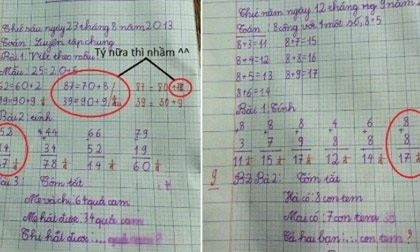 Thứ sáu ngày 23 tháng 8 năm 2013
Toán: Luyện tập chung
Tý nữa thì nhầm ^^
Bài 1: Viết theo mẫu
Mẫu: 25=20+5
62=60+2 87=70+8 87=80+
99=90+9 39=90+9 39=30+9
Bài 2: tính
52 44 66 79
34 52 19
78 14 60
Bài 3: Tóm tắt
Mẹ và chị: 64 quả cam
Mẹ hái được: 34 quả cam
Chị hái được:....
Thứ năm ngày 12 tháng 9 năm 2
Toán: 8 cộng với 1 một số, 8+5
8+3=11 8+7=15
8+4=12 8+8=16
8+5=13 8+9=17
8+6=14
Bài 1: Tính
8 8 8 4 6 8
3 7 9 8 8 8
11 15 17 12 14 17
9
Bài 2: Tóm tắt
Hà có: 8 con tem
Mai có: 7 con tem
Cả hai bạn:....con tem?